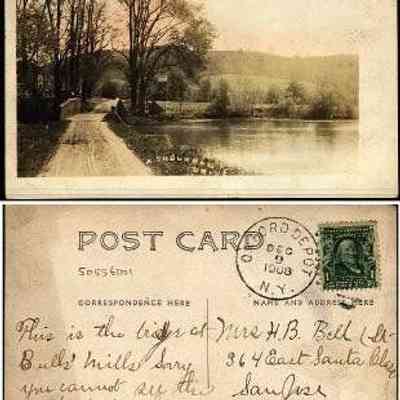 POST CARD
5055601
OXFORD DEPOT
DEC
9
1908
N.Y.
CORRESPONDENCE HERE
NAME AND ADDRESS HERE
This is the bridge at
Bulls' Mills Sorry
you cannot see the
Mrs H.B. Bell
364 East Santa Clara
San Jose